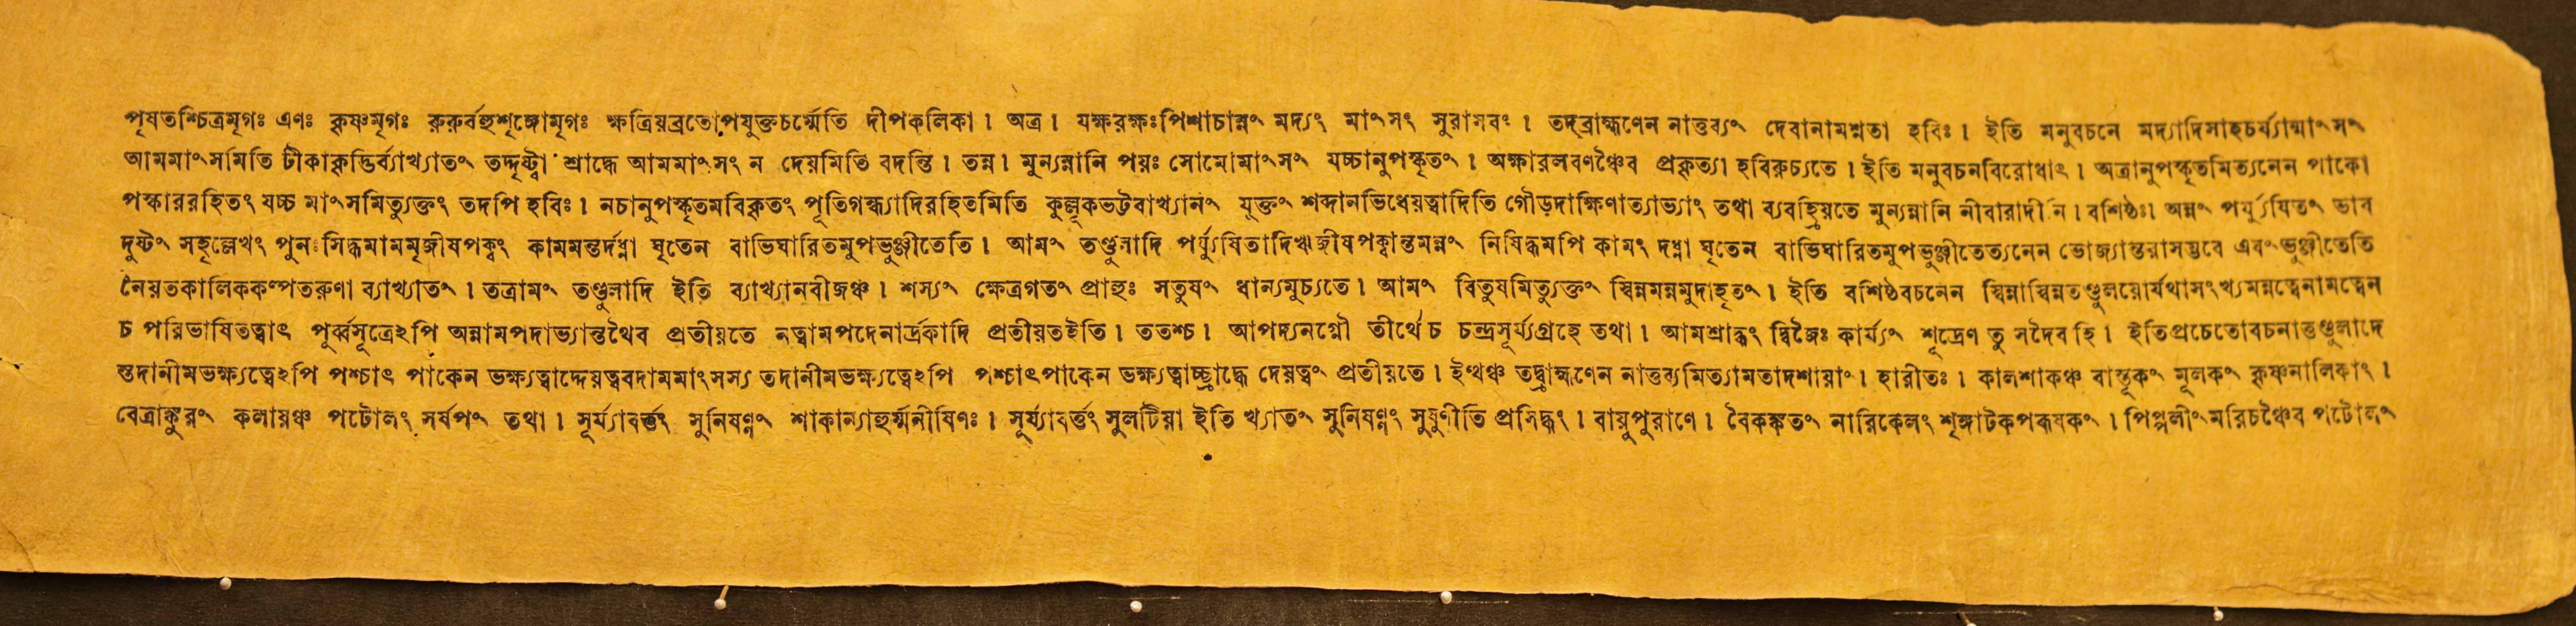 পৃষতশ্চিত্রমৃগঃ এণঃ কৃষ্ণমৃগঃ রুরুর্বহুশৃঙ্গোমৃগঃ ক্ষত্রিয়ব্রতোপযুক্তচর্ম্মেতি দীপকলিকা । অত্র । যক্ষরক্ষঃপিশাচান্নং মদ্যং মাংসং সুরাসবং । তদ্ব্রাহ্মণেন নাত্তব্যং দেবানামশ্নতা হবিঃ । ইতি মনুবচনে মদ্যাদিসাহচর্য্যান্মাংসং
আমমাংসমিতি টীকাকৃদ্ভির্ব্যাখ্যাতং তদ্দৃষ্ট্বা শ্রাদ্ধে আমমাংসং ন দেয়মিতি বদন্তি । তন্ন । মুন্যন্নানি পয়ঃ সোমোমাংসং যচ্চানুপস্কৃতং । অক্ষারলবণঞ্চৈব প্রকৃত্যা হবিরুচ্যতে । ইতি মনুবচনবিরোধাৎ । অত্রানুপস্কৃতমিত্যনেন পাকো
পস্কাররহিতং যচ্চ মাংসমিত্যুক্তং তদপি হবিঃ । নচানুপস্কৃতমবিকৃতং পূতিগন্ধ্যাদিরহিতমিতি কুল্লূকভট্টবাখ্যানং যুক্তং শব্দানভিধেয়ত্বাদিতি গৌড়দাক্ষিণাত্যাভ্যাং তথা ব্যবহ্রিয়তে মুন্যন্নানি নীবারাদীনি । বশিষ্ঠঃ। অন্নং পর্য্যুষিতং ভাব
দুষ্টং সহৃল্লেখং পুনঃসিদ্ধমামমৃজীষপক্বং কামমন্তর্দধ্না ঘৃতেন বাভিঘারিতমুপভুঞ্জীতেতি । আমং তণ্ডুলাদি পর্য্যুষিতাদিঋজীষপক্বান্তমন্নং নিষিদ্ধমপি কামং দধ্না ঘৃতেন বাভিঘারিতমুপভুঞ্জীতেত্যনেন ভোজ্যান্তরাসম্ভবে এবং ভুঞ্জীতেতি
নৈয়তকালিককল্পতরুণা ব্যাখ্যাতং । তত্রামং তণ্ডুলাদি ইতি ব্যাখ্যানবীজঞ্চ । শস্যং ক্ষেত্রগতং প্রাহুঃ সতুষং ধান্যমুচ্যতে । আমং বিতুষমিত্যুক্তং স্বিন্নমন্নমুদাহৃতং । ইতি বশিষ্ঠবচনেন স্বিন্নাস্বিন্নতণ্ডুলয়োর্যথাসংখ্যমন্নত্বেনামত্বেন
চ পরিভাষিতত্বাৎ পূর্ব্বসূত্রেঽপি অন্নামপদাভ্যান্তথৈব প্রতীয়তে নত্বামপদেনার্দ্রকাদি প্রতীয়তইতি । ততশ্চ । আপদ্যনগ্নৌ তীর্থে চ চন্দ্রসূর্য্যগ্রহে তথা । আমশ্রাদ্ধং দ্বিজৈঃ কার্য্যং শূদ্রেণ তু সদৈব হি । ইতিপ্রচেতোবচনাত্তণ্ডুলাদে
স্তদানীমভক্ষ্যত্বেঽপি পশ্চাৎ পাকেন ভক্ষ্যত্বাদ্দেয়ত্ববদামমাংসস্য তদানীমভক্ষ্যত্বেঽপি পশ্চাৎপাকেন ভক্ষ্যত্বাচ্ছ্রাদ্ধে দেয়ত্বং প্রতীয়তে । ইত্থঞ্চ তদ্ব্রাহ্মণেন নাত্তব্যমিত্যামতাদশায়াং । হারীতঃ । কালশাকঞ্চ বাস্তূকং মূলকং কৃষ্ণনালিকাং ।
বেত্রাঙ্কুরং কলায়ঞ্চ পটোলং সর্ষপং তথা । সূর্য্যাবর্ত্তং সুনিষণ্ণং শাকান্যাহুর্ম্মনীষিণঃ । সূর্য্যাবর্ত্তং সুলটিয়া ইতি খ্যাতং সুনিষণ্ণং সুষুণীতি প্রসিদ্ধং । বায়ুপুরাণে । বৈকঙ্কতং নারিকেলং শৃঙ্গাটকপরূষকং । পিপ্পলীং মরিচঞ্চৈব পটোলং